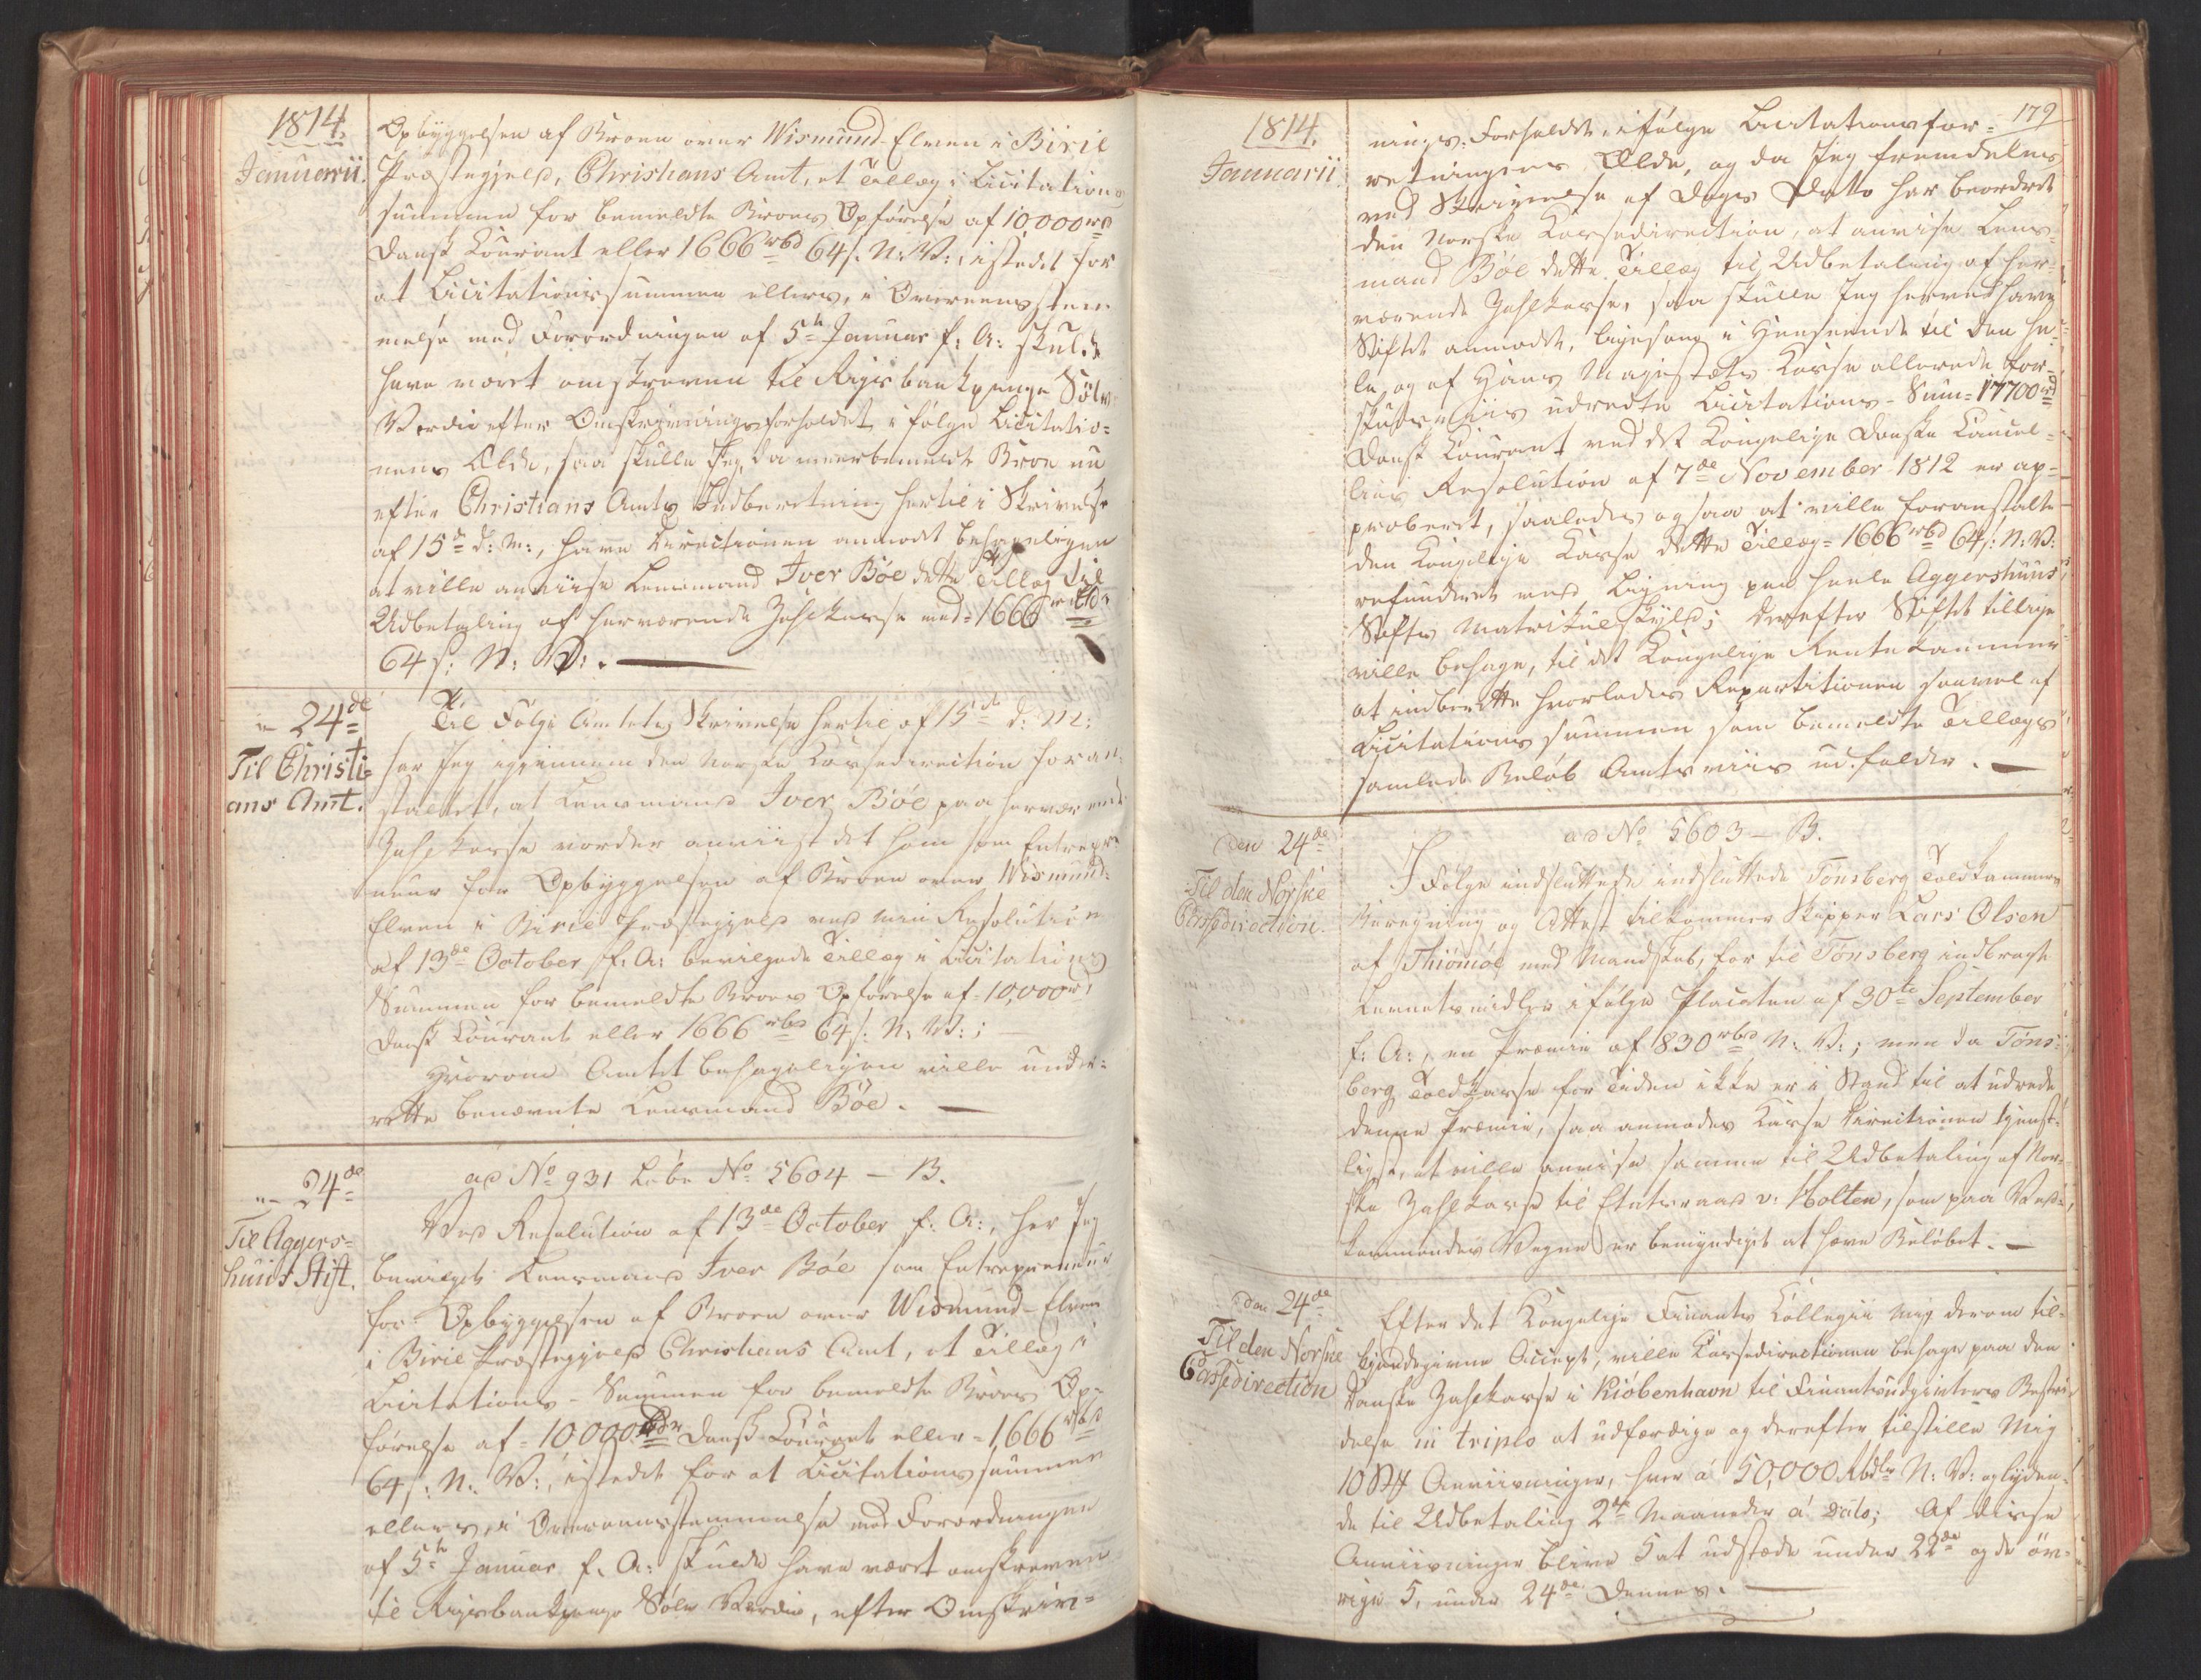 1814.
Januarii.
Opbyggelsen af Broen over Wismund-Elven i Birie
Præstegjeld, Christians Amt, et Tillæg i Licitations
summen for bemeldte Broes Opførelse af 10000 rd
Dansk Courant eller 1666 rbd 64 s. N: V:, istedet for
at Licitationssummen ellers, i Overeensstem
melse med Forordningen af 5te Januar f: A: skulde
have været omskreven til Rigsbankpenge Sølv
Værdie efter Omskrivningsforholdet i følge Licitatio=
nens Ælde, saa skulle Jeg, da meerbemeldte Broe nu
efter Christians Amts Indberetning hertil i Skrivelse
af 15de d: M:, have Directionen anmodet behageligen
at ville anviise Lensmand Iver Böe dette Tillæg til
Udbetaling af herværende Zahlkasse med = 1666 rbdr
64 s: N: V:. —
" 24de
Til Christi=
ans Amt.
Til Følge Amtets Skrivelse hertil af 15de d: M:
har Jeg igjennem den Norske Cassedirection foran=
staltet, at Lensmand Iver Böe paa herværende
Zahlkasse vorder anviist det ham som Entrepre
neur for Opbyggelsen af Broen over Wismund=
Elven i Birie Præstegjeld ved min Resolution
af 13de October f: A: bevilgede Tillæg i Licitations
Summen for bemeldte Broes Opførelse af = 10,000 rd
Dansk Courant eller 1666 rbd 64 s: N: V:; —
Hvorom Amtet behageligen ville under=
rette benævnte Lensmand Böe. —
" 24de
Til Aggers=
huus Stift.
ad No 931 Lebr No 5604 — B.
Ved Resolution af 13de October f: A:, har Jeg
bevilget Lensmand Iver Böe som Entrepreneur
for Opbyggelsen af Broen over Wismund-Elven
i Birie Præstegjeld Christians Amt, et Tillæg i
Licitations-Summen for bemeldte Broes Op=
førelse af = 10000 Rdr Dansk Courant eller = 1666 rbd
64 s: N: V:, istedet for at Licitationssummen
ellers, i Overeensstemmelse med Forordningen
af 5te Januar f: A: skulde have været omskreven
til Rigsbankpenge Sølv Værdie, efter Omskriv=
179
1814.
Januarii
nings-Forholdet, ifølge Licitationsfor=
retningens Ælde, og da Jeg fremdeles
ved Skrivelse af Dags Dato har beordret
den Norske Cassedirection, at anvise Lens=
mand Böe dette Tillæg til Udbetaling af her=
værende Zahlkasse, saa skulle Jeg herved have
Stiftet anmodet, ligesom i Henseende til den he=
le, og af Hans Majestæts Kasse allerede for=
skudsviis udredte Licitations-Sum = 17700 rd
Dansk Courant ved det Kongelige Danske Cancel=
lies Resolution af 7de November 1812 er ap=
proberet, saaledes ogsaa at ville foranstalte
den Kongelige Kasse dette Tillæg = 1666 rbd 64 s: N: V:
refunderet med Ligning paa heele Aggershuus
Stifts Matrikulskyld; Derefter Stiftet tillige
ville behage, til det Kongelige Rentekammer
at indberette hvorledes Repartitionen saavel af
Licitationssummen som bemeldte Tillægs
samlede Beløb Amtsviis udfalder. —
den 24de
Til den Norske
Cassedirection.
ad No 5603 — B.
I Følge indsluttede indsluttede Tönsberg Toldkammers
Beregning og Attest tilkommer Skipper Lars Olsen
af Thiömöe med Mandskab, for til Tönsberg indbragte
Levnetsmidler ifølge Placaten af 30te September
f: A:, en Præmie af 830 rbd N: V:; men da Töns=
berg Toldkasse for Tiden ikke er i Stand til at udrede
denne Præmie, saa anmodes Casse Directionen tjenst=
ligst, at ville anvise samme til Udbetaling af Nor=
ske Zahlkasse til Etatsraad v: Holten, som paa Ved=
kommendes Vegne er bemyndiget at hæve Beløbet. —
den 24de
Til den Norske
Cassedirection
Efter det Kongelige Finants Collegii mig derom til=
kjendegivne Accept, ville Cassedirectionen behage paa den
Danske Zahlkasse i Kiöbenhavn til Finantsudgivters Bestri
delse in triplo at udfærdige og derefter tilstille Mig
10 Stk Anviisninger, hver á 50,000 Rbdlr N: V: og lyden=
de til Udbetaling 2de Maaneder á dato; Af disse
Anviisninger blive 5 at udstæde under 22de og de öv=
rige 5, under 24de dennes. —